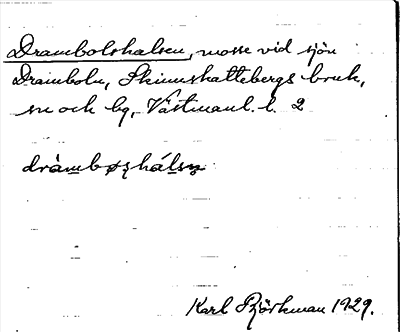 Drambolshalsen, mosse vid sjön
Dramboln, Skinnskattebergs bruk,
sn och bg, Västmanl. l. 2
dràmbøʂhálsn̥
Karl Björkman 1929.